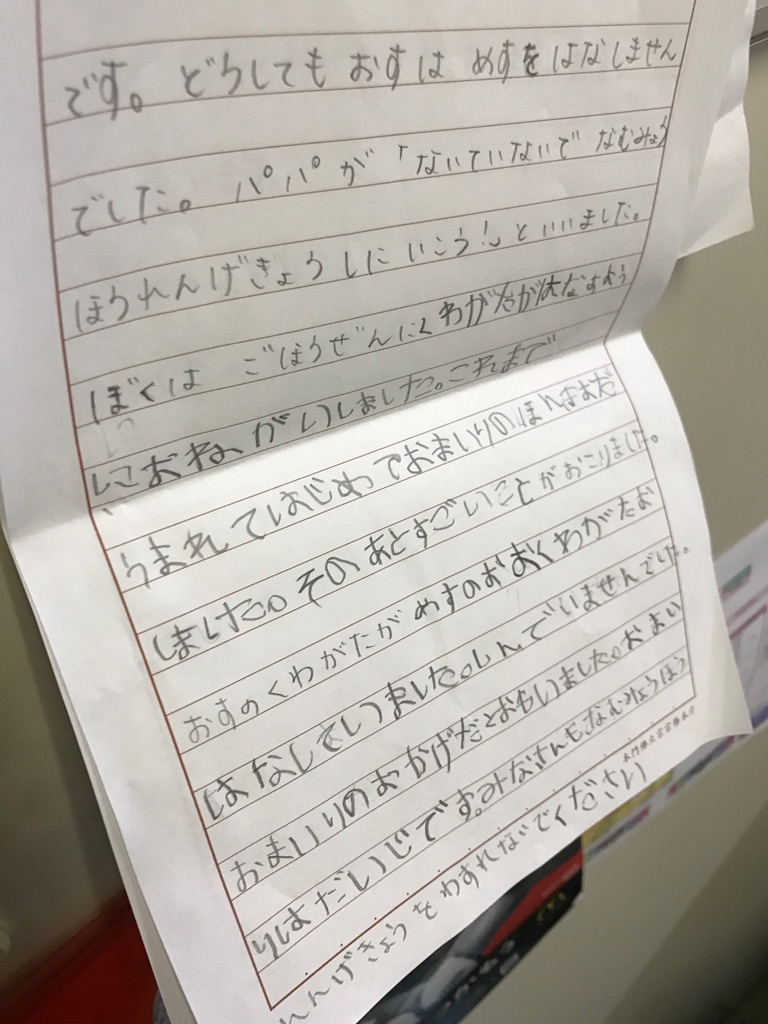 です。どうしても おすは めすを はなしません
でした。パパが「ないていないで なむみょう
ほうれんげきょうしにいこう!」といいました。
ぼくは ごほうぜんにくわがたがはなすよう
におねがいしました。これまで
うまれてはじめておまいりのほんきよだ
しました。そのあとすごいことがおこりました。
おすのくわがたが めすのおおくわがたお
はなしていました。しんでいませんでした。
おまいりのおかげだとおもいました。おまい
りはだいじです。みなさんもなむみょうほう
れんげきょうをわすれないでください